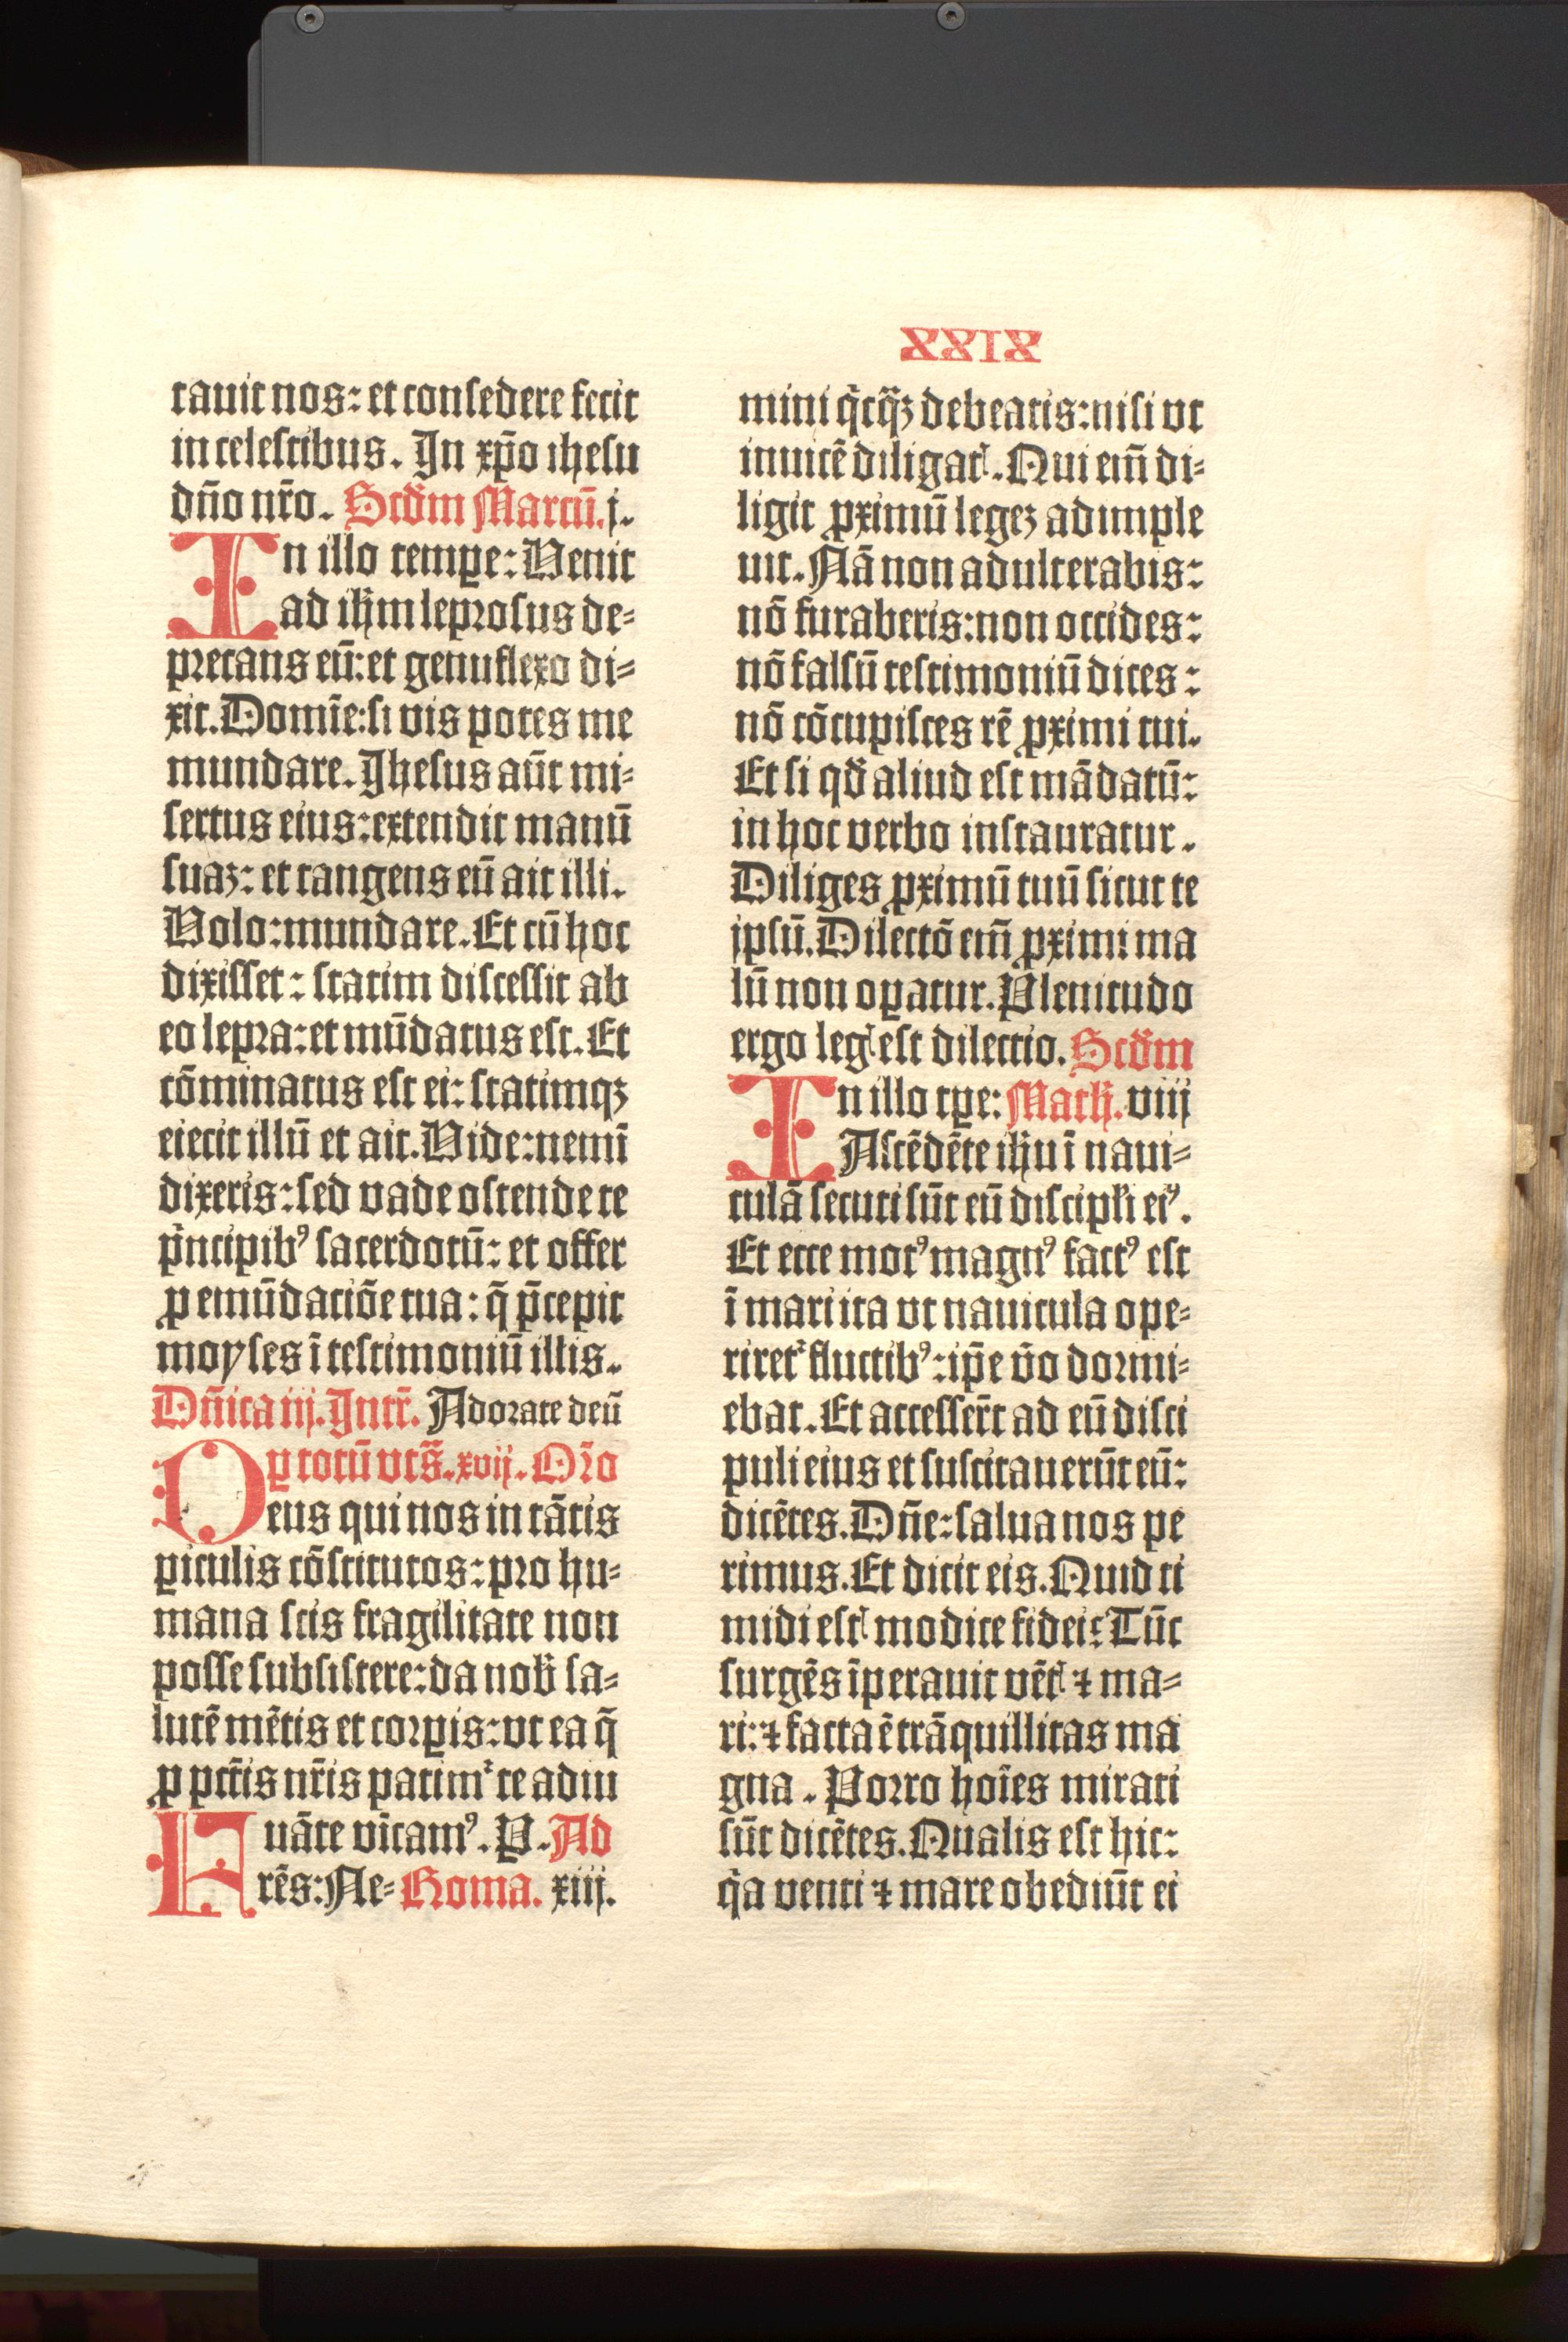 XXIX
tauit nos: et consedere fecit
in celestibus. In xp̄o ihesu
dn̄o nr̄o. Scd̄m Marcū. j.
In illo temꝑe: Venit
ad ih̄m leprosus de⸗
precans eū: et genuflexo di⸗
xit. Domīe: si vis potes me
mundare. Ihesus aūt mi⸗
sertus eius: extendit manū
suaꝫ: et tangens eū ait illi.
Volo: mundare. Et cū hoc
dixisset: statim discessit ab
eo lepra: et mūdatus est. Et
cōminatus est ei: statimqꝫ
eiecit illū et ait. Vide: nemī
dixeris: sed vade ostende te
p̄ncipibꝰ sacerdotū: et offer
ꝓ emūdatiōe tua: q̄ p̄cepit
moyses ī testimoniū illis.
Dn̄ica iij. Intr̄. Adorate deū
ꝑ totū vts̄. xvij. Or̄o
Deus qui nos in tātis
ꝑiculis cōstitutos: pro hu⸗
mana scis fragilitate non
posse subsistere: da nob̄ sa⸗
lutē mētis et corꝑis: vt ea q̄
ꝓ pctīs nr̄is patimᷣ te adiu
uāte vīcamꝰ. P. Ad
Frēs: Ne⸗ Roma. xiij.
mini q̄cq̄ꝫ debeatis: nisi vt
inuicē diligatꝭ. Qui em̄ di⸗
ligit ꝓximū legeꝫ adimple
uit. Nā non adulterabis:
nō furaberis: non occides:
nō falsū testimoniū dices:
nō cōcupisces rē ꝓximi tui.
Et si qd̄ aliud est mādatū:
in hoc verbo instauratur.
Diliges ꝓximū tuū sicut te
ipsū. Dilectō em̄ ꝓximi ma
lū non oꝑatur. Plenitudo
ergo legꝭ est dilectio. Scd̄m
In illo tꝑe: Math̄. viij
Ascēdēte ih̄u ī naui⸗
culā secuti sūt eū discipłi eiꝰ.
Et ecce motꝰ magnꝰ factꝰ est
ī mari ita vt nauicula ope⸗
riretᷣ fluctibꝰ: ip̄e v̄o dormi⸗
ebat. Et accesser̄t ad eū disci
puli eius et suscitauerūt eū:
dicētes. Dn̄e: salua nos pe
rimus. Et dicit eis. Quid ti
midi estꝭ modice fidei: Tūc
surgēs īperauit vētꝭ ⁊ ma⸗
ri: ⁊ facta ē trāquillitas ma
gna. Porro hoīes mirati
sūt dicētes. Qualis est hic:
q̄a venti ⁊ mare obediūt ei